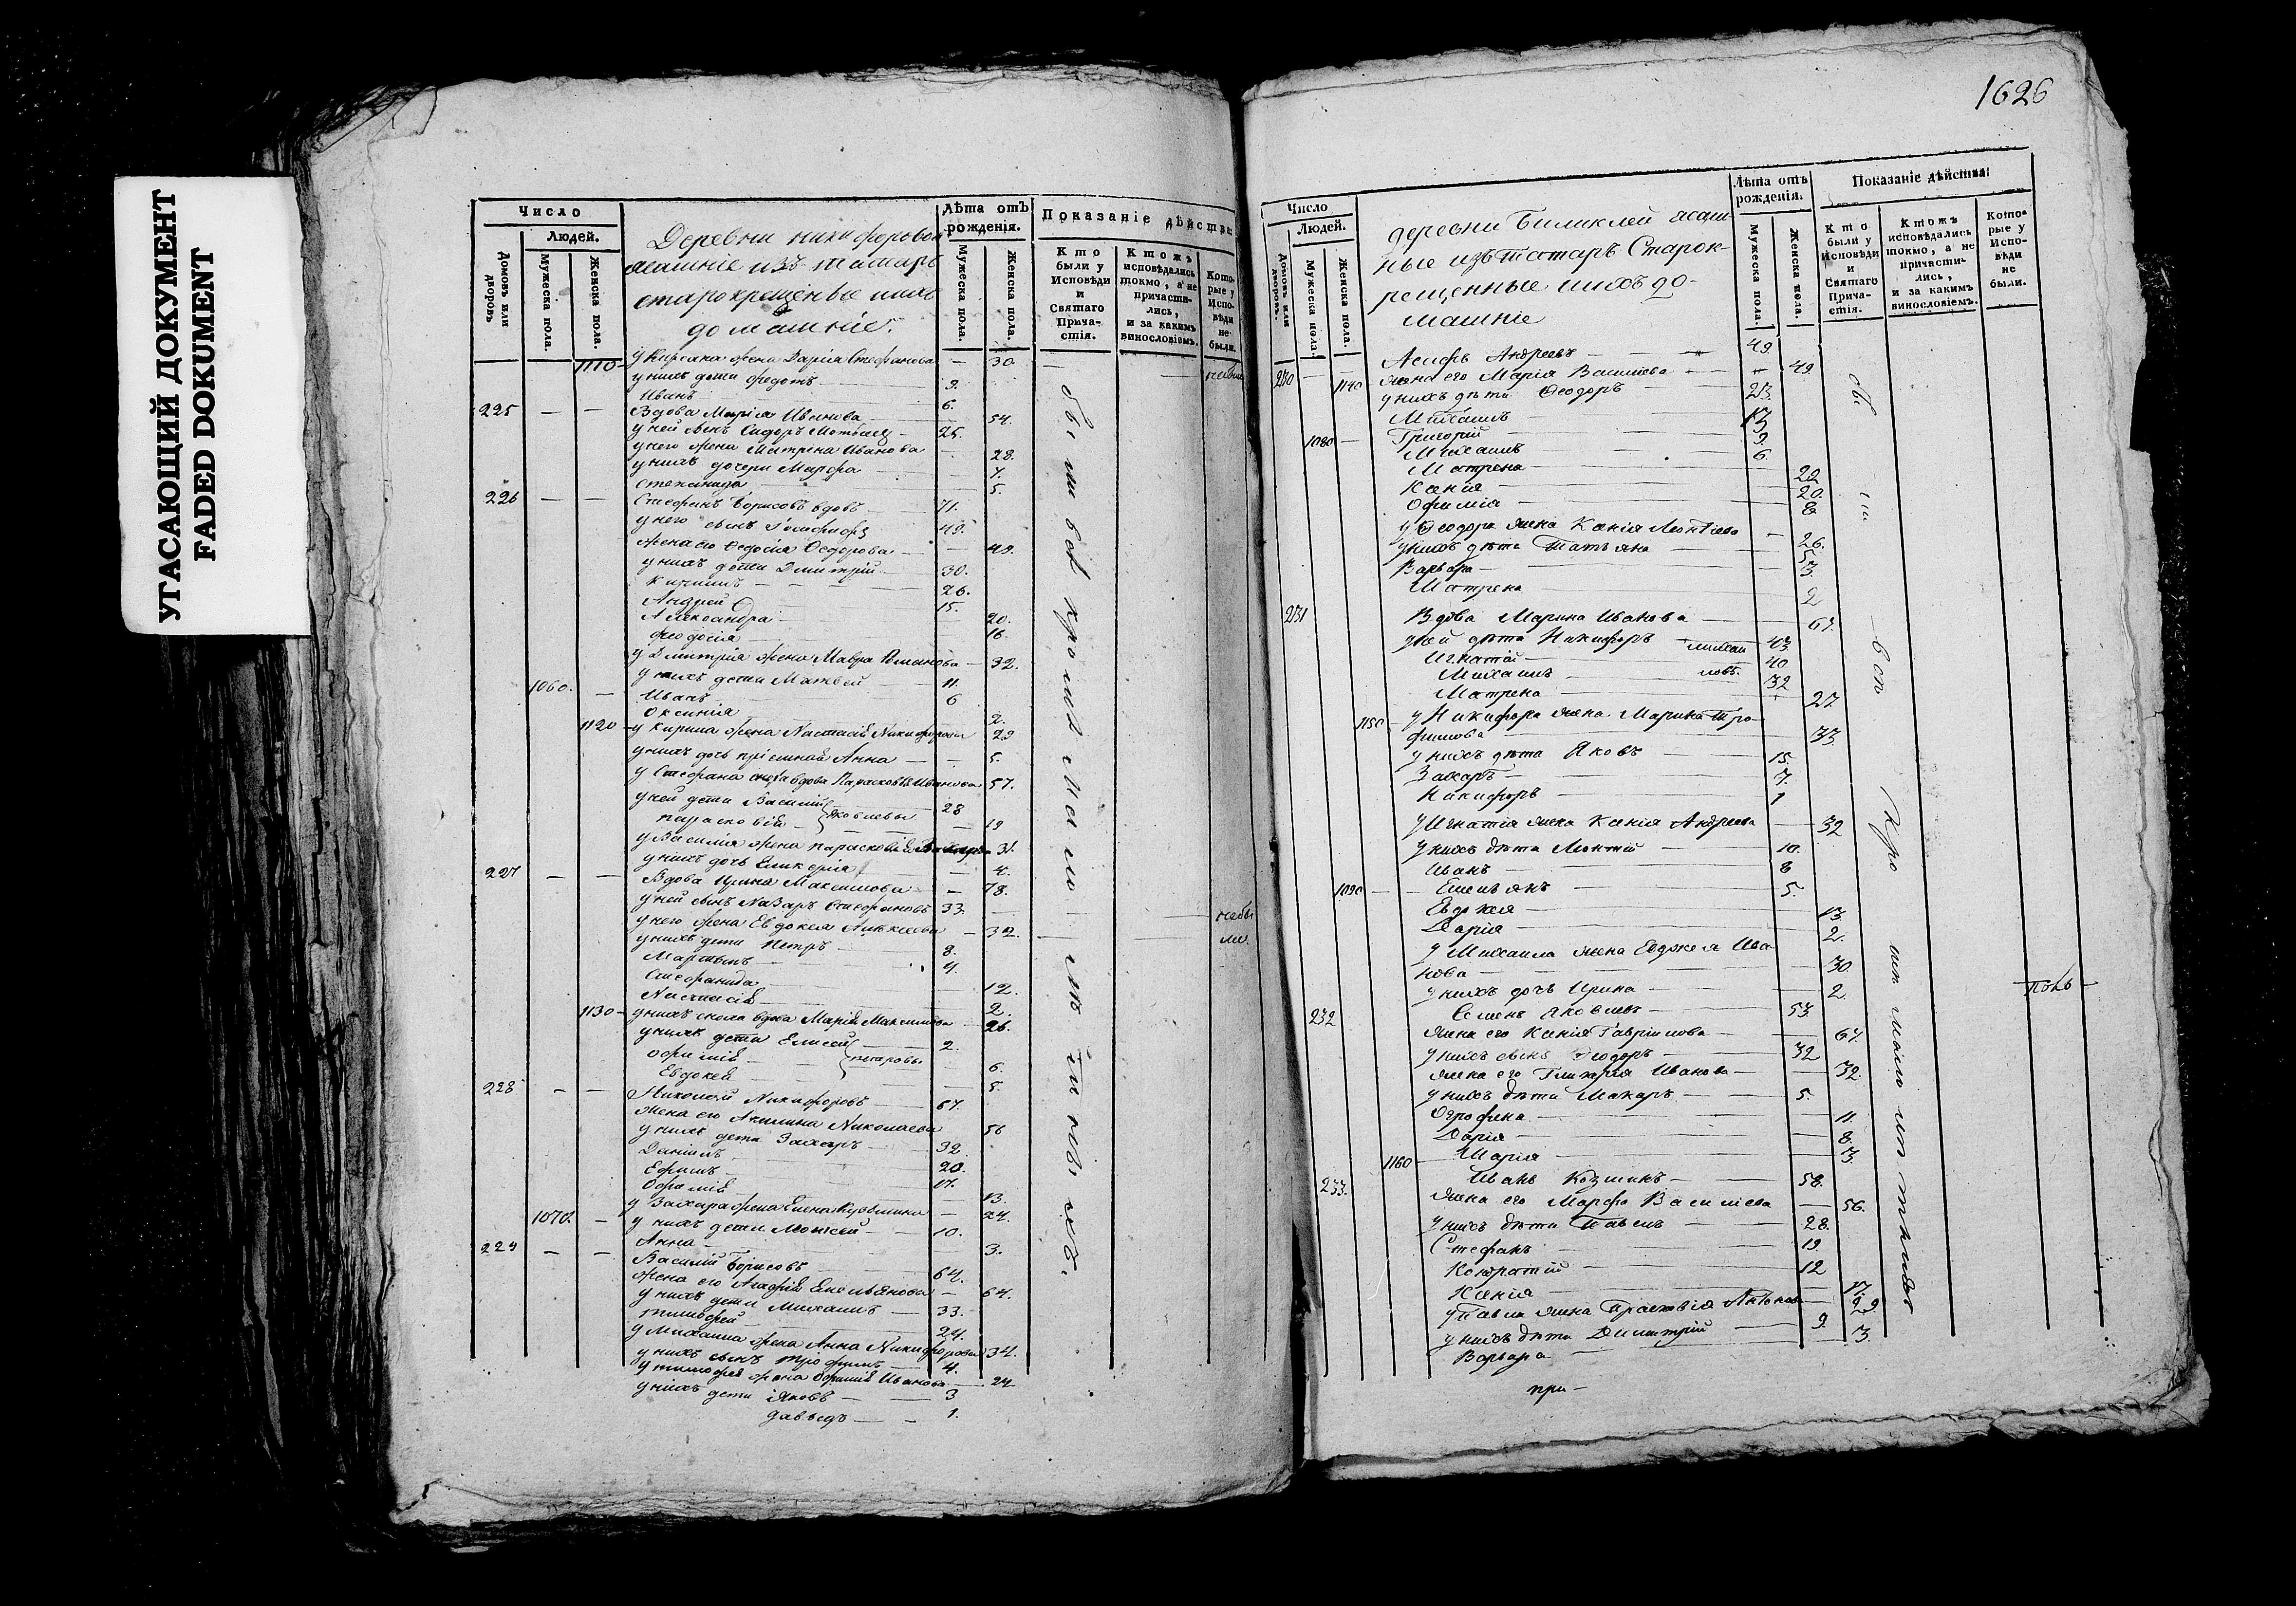 УГАСАЮЩИЙ ДОКУМЕНТ
FADED DOKUMENT
Число
Людей.
Домовъ или дворовъ
Мужеска пола.
Женска пола.
Деревни никифоровой
ясашніе изъ татаръ
старокрещеные ихъ
домашніе.
Лѣта отъ рожденія.
Мужеска пола.
Женска пола.
Показаніе дѣйства
Кто были у Исповѣди и Святаго Причастія.
Ктожъ исповѣдались токмо, а не причастились, и за какимъ винословіемъ.
Которые у Исповѣди не были.
1110 — у Кирсана жена Дарія Стефанова — 30.
у нихъ дети Федотъ — 9.
Иванъ — 6.
225 — — Вдова Марія Иванова — 54.
у ней сынъ Сидоръ — 25.
у него жена Матрена Иванова — 28.
у нихъ дочери Марфа — 7.
Степанида — 5.
226 — — Стефанъ Борисовъ вдовъ — 71.
у него сынъ — 49.
жена его Федосія Федорова — 49.
у нихъ дети Дмитрій — 30.
Кирилъ — 26.
Андрей — 15.
Александра — 20.
Феодосія — 16.
у Дмитрія жена Мавра — 32.
у нихъ дети Матвей — 11.
1060. — Иванъ — 6
Оксинія — 2.
1120 — у Кирила жена Настасія Никифорова 29
у нихъ дочь пріемная Анна — 5.
у Стефана сноха вдова Парасковія Иванова 57.
у ней дети Василій Яковлевы — 28
Парасковія — 19
у Василія жена Парасковія 31.
у нихъ дочь Гликерія — 4.
227 — — Вдова Ирина Максимова — 78.
у ней сынъ Назаръ Стефановъ 33.
у него жена Евдокея Алексеева — 32.
у нихъ дети Петръ — 8.
Мартынъ — 4.
Стефанида — 12.
Настасія — 2.
1130 — у нихъ сноха вдова Марія Максимова — 26.
у нихъ дети Елисей — 2.
Офимія — 6.
Евдокея — 5.
228 — — Николай Никифоровъ — 67.
жена его Акилина Николаева 56
у нихъ дети Захаръ — 32
Данилъ — 20.
Ефимъ — 17.
Офимія — 13.
у Захара жена Елена Кузмина — 24.
1070. — у нихъ дети Моисей — 10.
Анна — 3.
229 — — Василій Борисовъ — 64.
жена его Агафія Емельянова — 64.
у нихъ дети Михаилъ — 33.
Тимофей — 24.
у Михаила жена Анна Никифорова 34.
у нихъ сынъ Трофимъ — 4.
у Тимофея жена Офимія Иванова — 24
у нихъ дети Яковъ — 3
Давыдъ — 1.
были всѣ кромѣ малолѣтныхъ.
небыли
небы
ли.
1626
Число
Людей.
Домовъ или дворовъ.
Мужеска пола.
Женска пола.
деревни Биликлей ясаш-
ные изъ татаръ Старок-
рещенные ихъ до-
машніе
Лѣта отъ рожденія.
Мужеска пола.
Женска пола.
Показаніе дѣйства
Кто были у Исповѣди и Святаго Причастія.
Ктожъ исповѣдались токмо, а не причастились, и за какимъ винословіемъ.
Которые у Исповѣди не были.
230 Андреевъ — 49.
1140 жена его Марія Василева — 49.
у нихъ дѣти Феодоръ — 23.
Михаилъ — 13
1080 — Григорій — 9.
Михаилъ — 6.
Матрена — 22
Ксенія — 20.
Офимія — 8
у Феодора жена Ксенія Леонтіева — 26.
у нихъ дѣти Татьяна — 5
Варвара — 3.
Матрена — 2
231 Вдова Марина Иванова — 67.
у ней дѣти Никифоръ — михаи 43
Игнатій — 40
Михаилъ — ловъ. 32
Матрена — 27
1150 — у Никифора жена Марина Тро-
фимова — 33.
у нихъ дѣти Яковъ — 15.
Захаръ — 7.
Никифоръ — 1
у Игнатія жена Ксенія Андреева — 32
у нихъ дѣти Леонтій — 10.
Иванъ — 8
1090 — Емельянъ — 5.
Евдокея — 13.
Дарія — 2.
у Михаила жена Евдокея Ива
нова — 30.
у нихъ дочь Ирина — 2.
232 Семенъ Яковлевъ — 53
жена его Ксенія Гаврилова — 67.
у нихъ сынъ Феодоръ — 32
жена его Гликерія Иванова — 32.
у нихъ дѣти Макаръ — 5
Огрофена — 11.
Дарія — 8.
1160 — Марія — 3
233. Иванъ Козминъ — 58.
жена его Марфа Василева — 56.
у нихъ дѣти Павелъ — 28.
Стефанъ — 19.
Кондратій — 12
Ксенія — 17.
у Павла жена Прасковія — 29.
у нихъ дѣти Димитрій — 9.
Варвара — 3.
при-